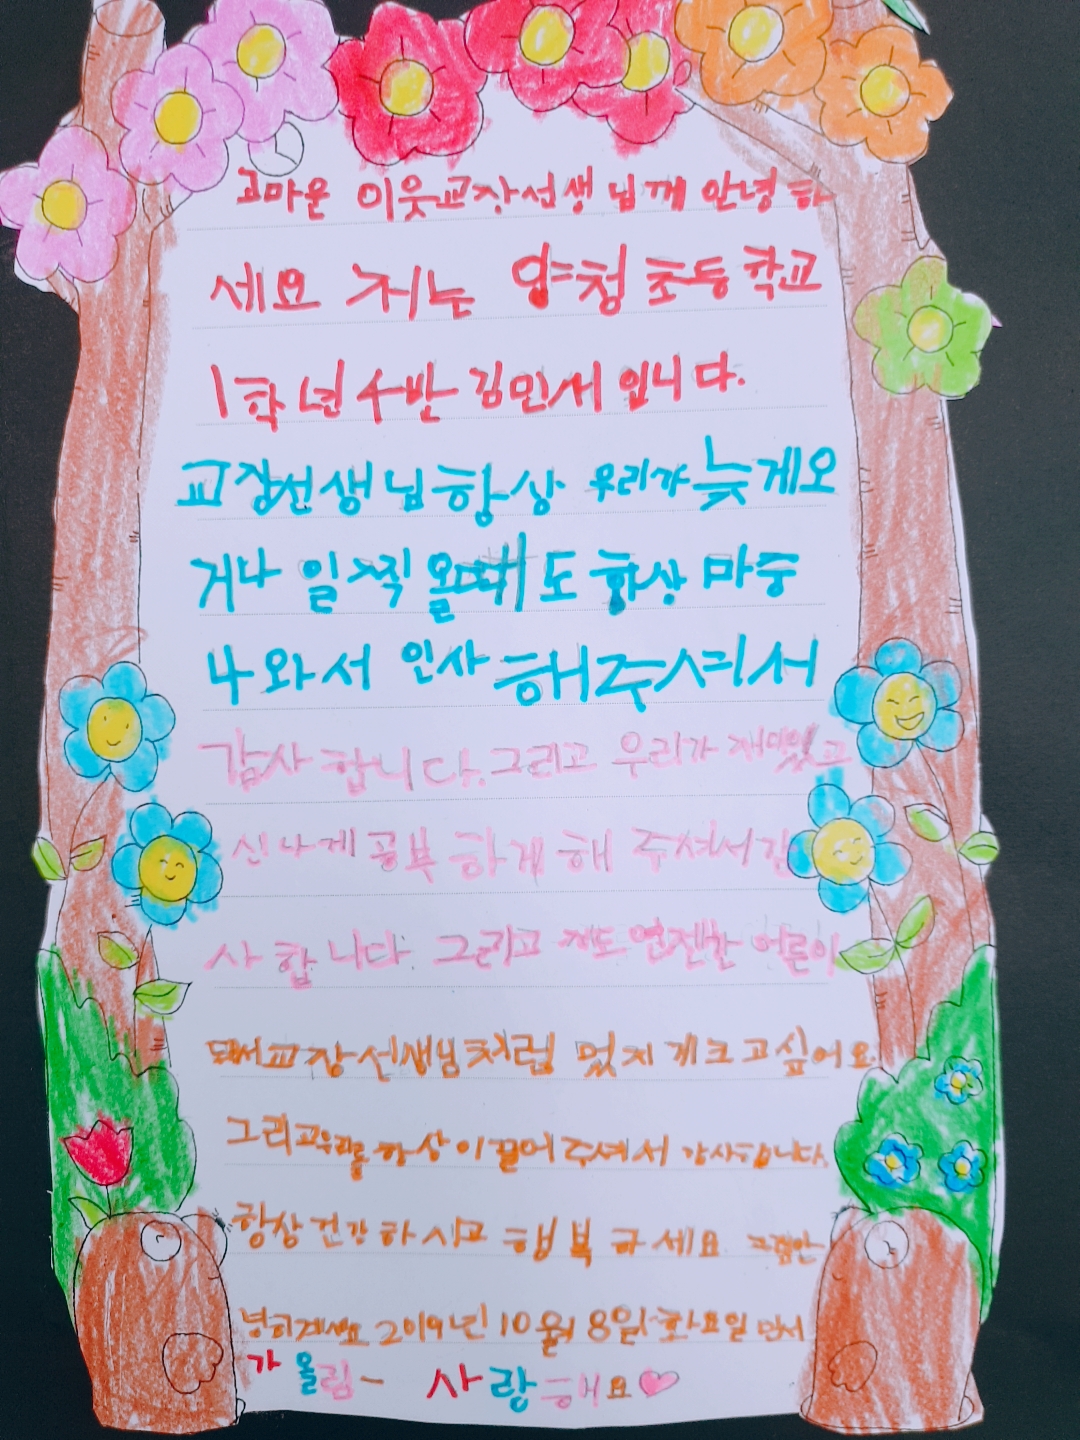 고마운 이웃교장선생님께 안녕하
세요 저는 양청초등학교
1학년 4반 김민서입니다.
교장선생님항상 우리가 늦게오
거나 일찍 올때도 항상 마중
나와서 인사 해주셔서
감사합니다. 그리고 우리가 재밌고
신나게 공부하게 해 주셔서 감
사합니다. 그리고 저도 연전한 어른이
되서 교장선생님처럼 멌지게크고싶어요
그리고우리를 항상 이끌어 주셔서 감사합니다.
항상 건강하시고 행복하세요 그럼안
녕히계세요 2019년 10월 8일 화요일 민서
가 올림- 사랑해요♥